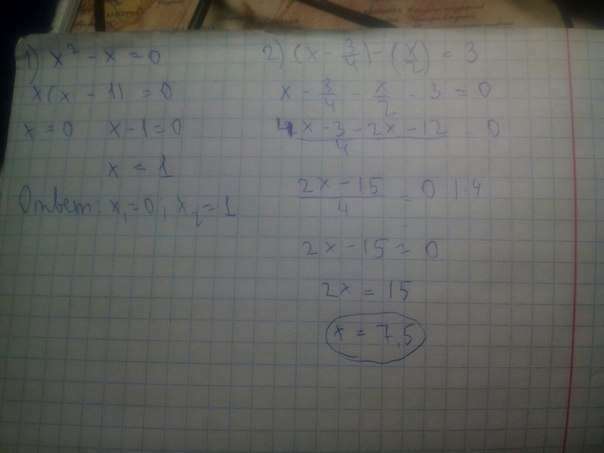 1) x² - x = 0
x(x - 1) = 0
x = 0 x - 1 = 0
x = 1
Ответ: x₁ = 0; x₂ = 1
2) (x - 3/4) - (x/2) = 3
x - 3/4 - x/2 - 3 = 0
4x - 3 - 2x - 12 / 4 = 0
2x - 15 / 4 = 0 | · 4
2x - 15 = 0
2x = 15
x = 7,5